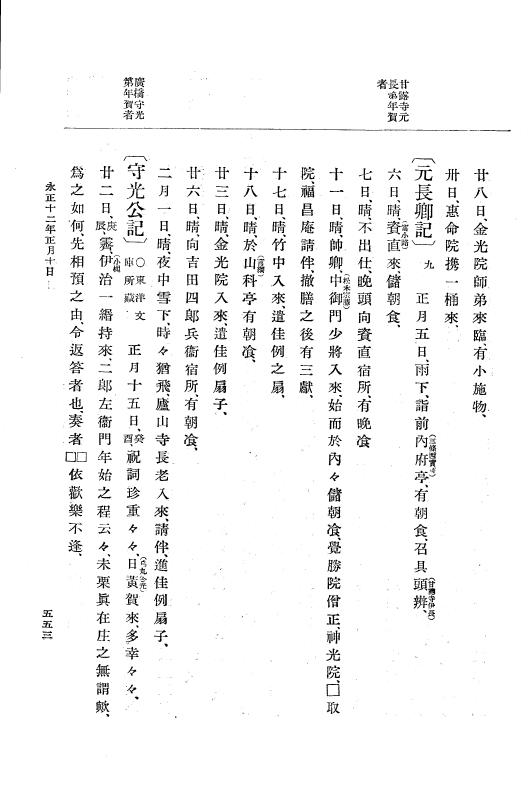 甘露寺元
長ノ年賀
者
廣橋守光
第年賀者
廿八日、金光院師弟來臨、有小施物、
卅日、惠命院携一桶來、
〔元長卿記〕九 正月五日、雨下、詣前內府亭、有朝食、召具頭辨、
六日、晴、資直來、儲朝食、
七日、晴、不出仕、晚頭向資直宿所、有晚飡
十一日、晴、帥卿、中御門少將入來、始而於內々儲朝飡、覺勝院僧正、神光院、□取
院、福昌庵請伴、撤膳之後有三獻、
十七日、晴、竹中入來、遣佳例之扇、
十八日、晴、於山科亭有朝飡、
廿三日、晴、金光院入來、遣佳例扇子、
廿六日、晴、向吉田四郞兵衞宿所、有朝飡、
二月一日、晴、夜中雪下、時々猶飛、廬山寺長老入來、請伴、進佳例扇子、
〔守光公記〕○東洋文庫所藏 正月十五日、癸酉、祝詞珍重々々、日黃賀來、多幸々々、
廿二日、庚辰、霽、伊治一緡持來、二郞左衞門年始之程云々、未栗眞在庄之無謂歟、
爲之如何、先相預之由令返答者也、奏者□□依歡樂不逢、
永正十二年正月十日
五五三